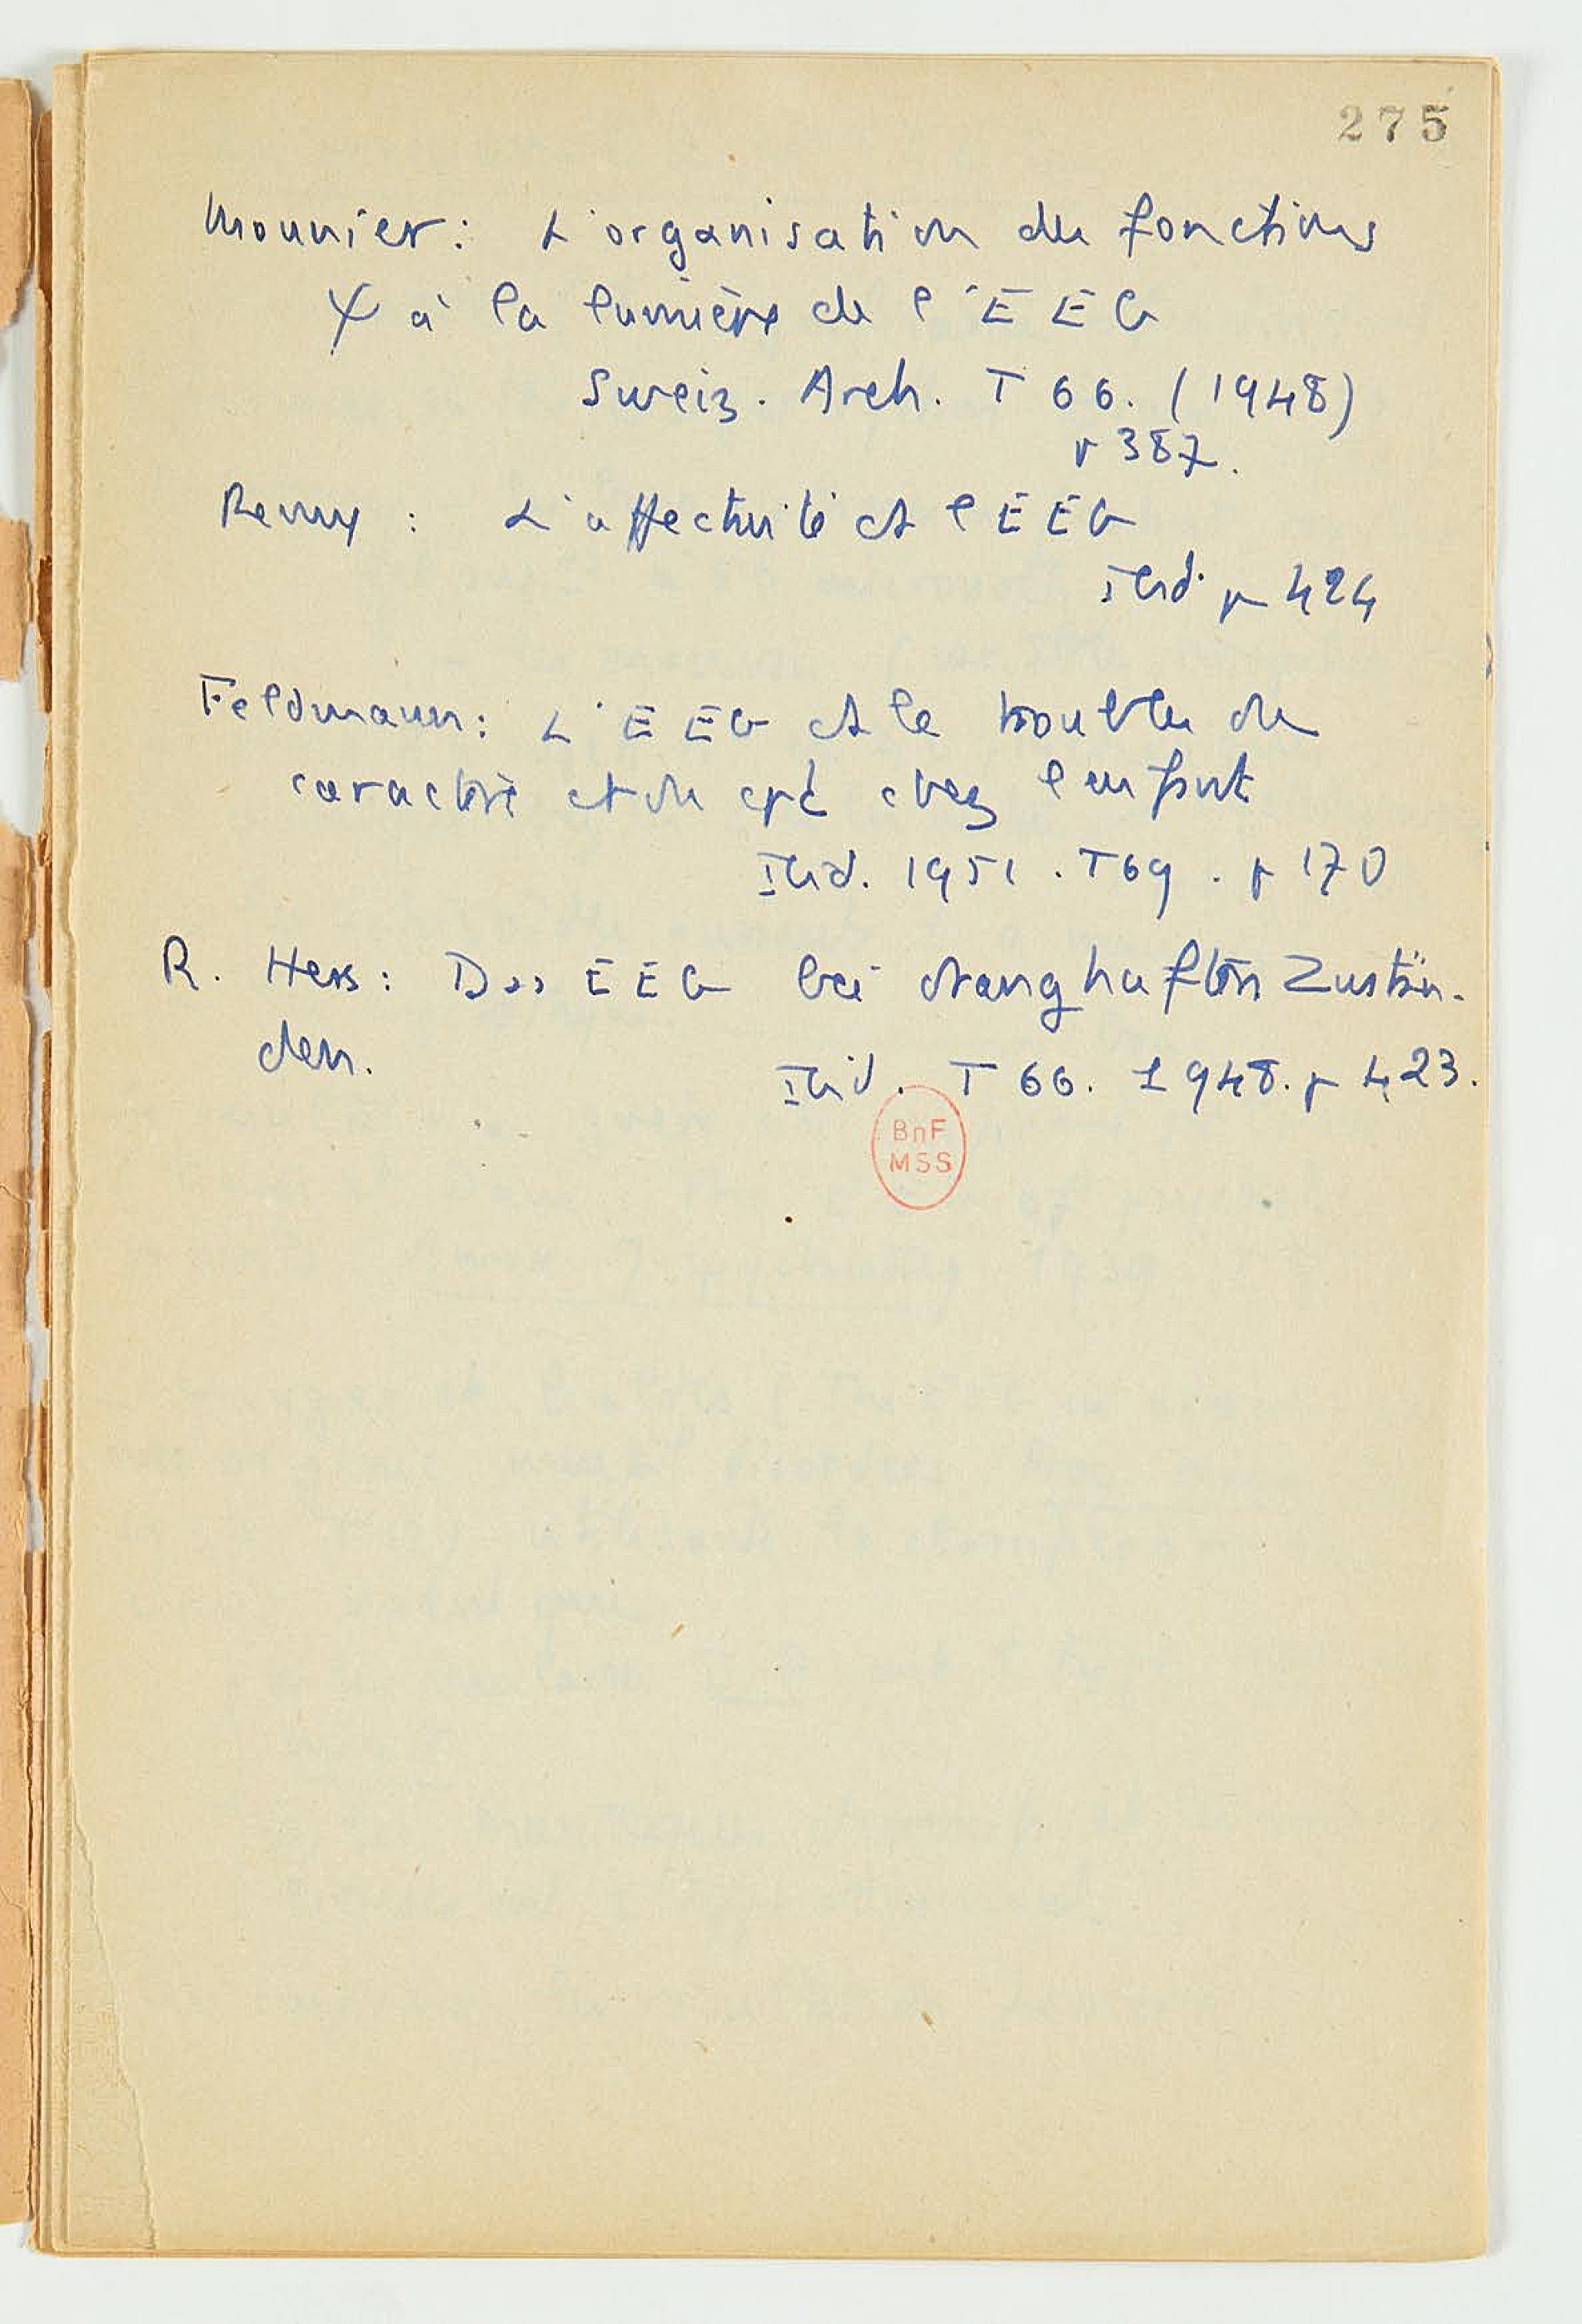 275
Mounier: L'organisation des fonctions
ψ à la lumière de l'EEG
Sweiz. Arch. T 66. (1948)
p 387.
Remy : L'affectivité et l'EEG
Ibid. p 424
Feldmann: L'EEG et les troubles du
caractère et du cpt chez l'enfant
Ibid. 1951. T69. p 170
R. Hess: Das EEG bei dranghaften Zustän-
den.
Ibid. T 66. 1948. p 423.
BnF
MSS